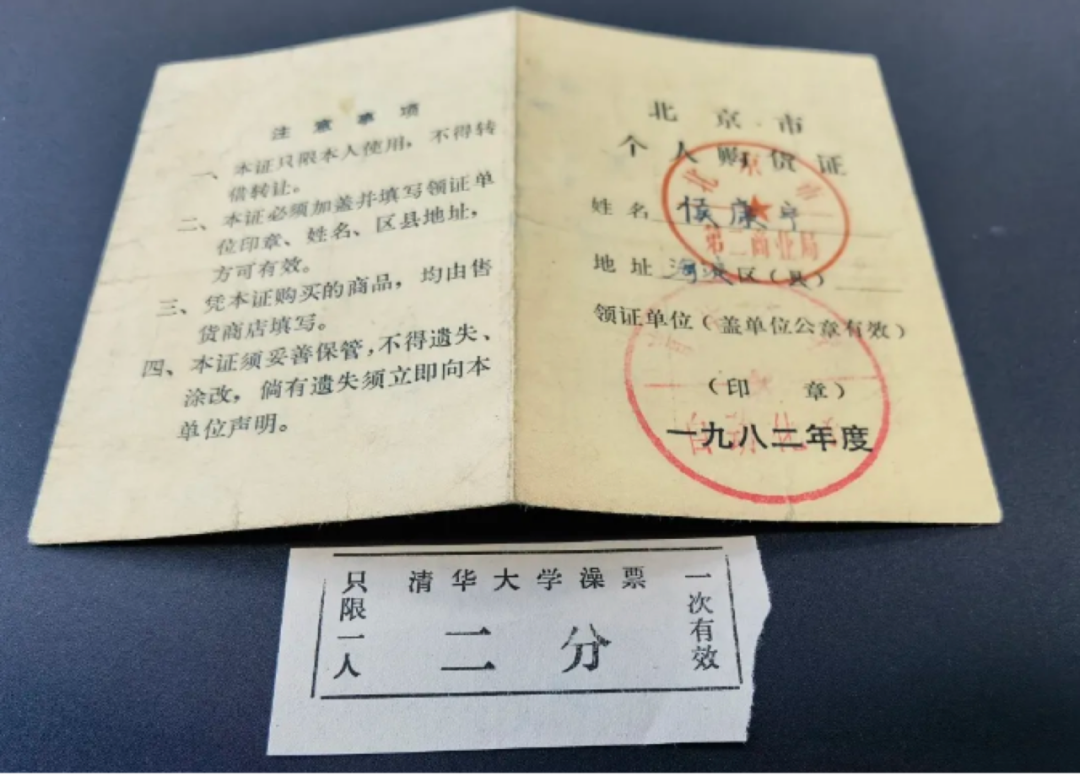 注意事项
一、本证只限本人使用，不得转
借转让。
二、本证必须加盖并填写领证单
位印章、姓名、区县地址，
方可有效。
三、凭本证购买的商品，均由售
货商店填写。
四、本证须妥善保管，不得遗失、
涂改，倘有遗失须立即向本
单位声明。
北京市
个人购货证
姓名 侯康
地址 海淀区（县）
领证单位（盖单位公章有效）
（印 章）
一九八二年度
北京市
第二商业局
只限一人
清华大学澡票
二分
一次有效